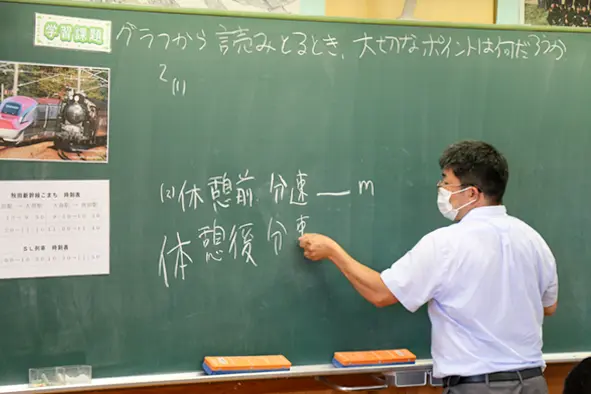 学習課題
グラフから読みとるとき、大切なポイントは何だろうか
2
(1)
(2)休憩前 分速―m
休憩後 分速
秋田新幹線こまち 時刻表